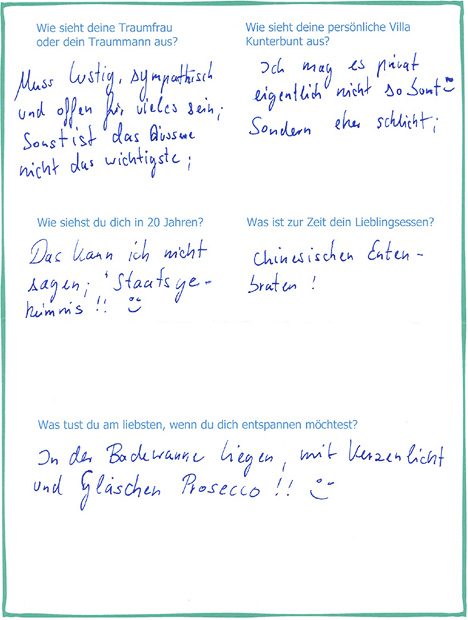 Wie sieht deine Traumfrau
oder dein Traummann aus?
Muss lustig, sympathisch
und offen für vieles sein;
Sonst ist das Äussere
nicht das wichtigste;
Wie sieht deine persönliche Villa
Kunterbunt aus?
Ich mag es privat
eigentlich nicht so bunt
Sondern eher schlicht;
Wie siehst du dich in 20 Jahren?
Das kann ich nicht
sagen; 'Staatsge-
heimnis !!
Was ist zur Zeit dein Lieblingsessen?
Chinesischen Enten-
braten !
Was tust du am liebsten, wenn du dich entspannen möchtest?
In der Badewanne liegen, mit Kerzenlicht
und Gläschen Prosecco !!